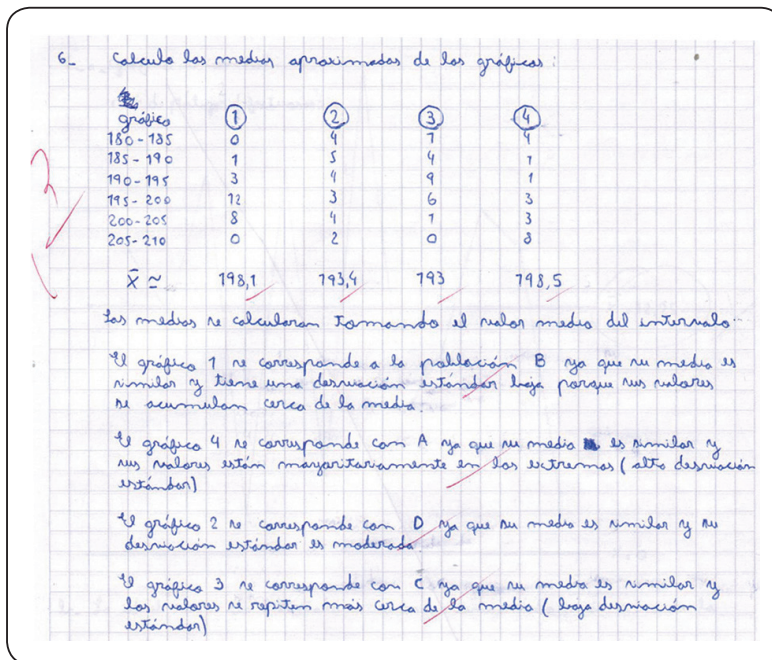 6_ Calculo las medias aproximadas de las gráficas:
gráfico 1 2 3 4
180-185 0 4 1 4
185-190 1 5 4 1
190-195 3 4 9 1
195-200 12 3 6 3
200-205 8 4 1 3
205-210 0 2 0 8
x̄ ≃ 198,1 193,4 193 198,5
Las medias se calcularan tomando el valor medio del intervalo.
El gráfico 1 se corresponde a la población B ya que su media es
similar y tiene una desviación estándar baja porque sus valores
se acumulan cerca de la media.
El gráfico 4 se corresponde con A ya que su media es similar y
sus valores están mayoritariamente en los extremos (alta desviación
estándar)
El gráfico 2 se corresponde con D ya que su media es similar y su
desviación estándar es moderada.
El gráfico 3 se corresponde con C ya que su media es similar y
los valores se repiten más cerca de la media (baja desviación
estándar)